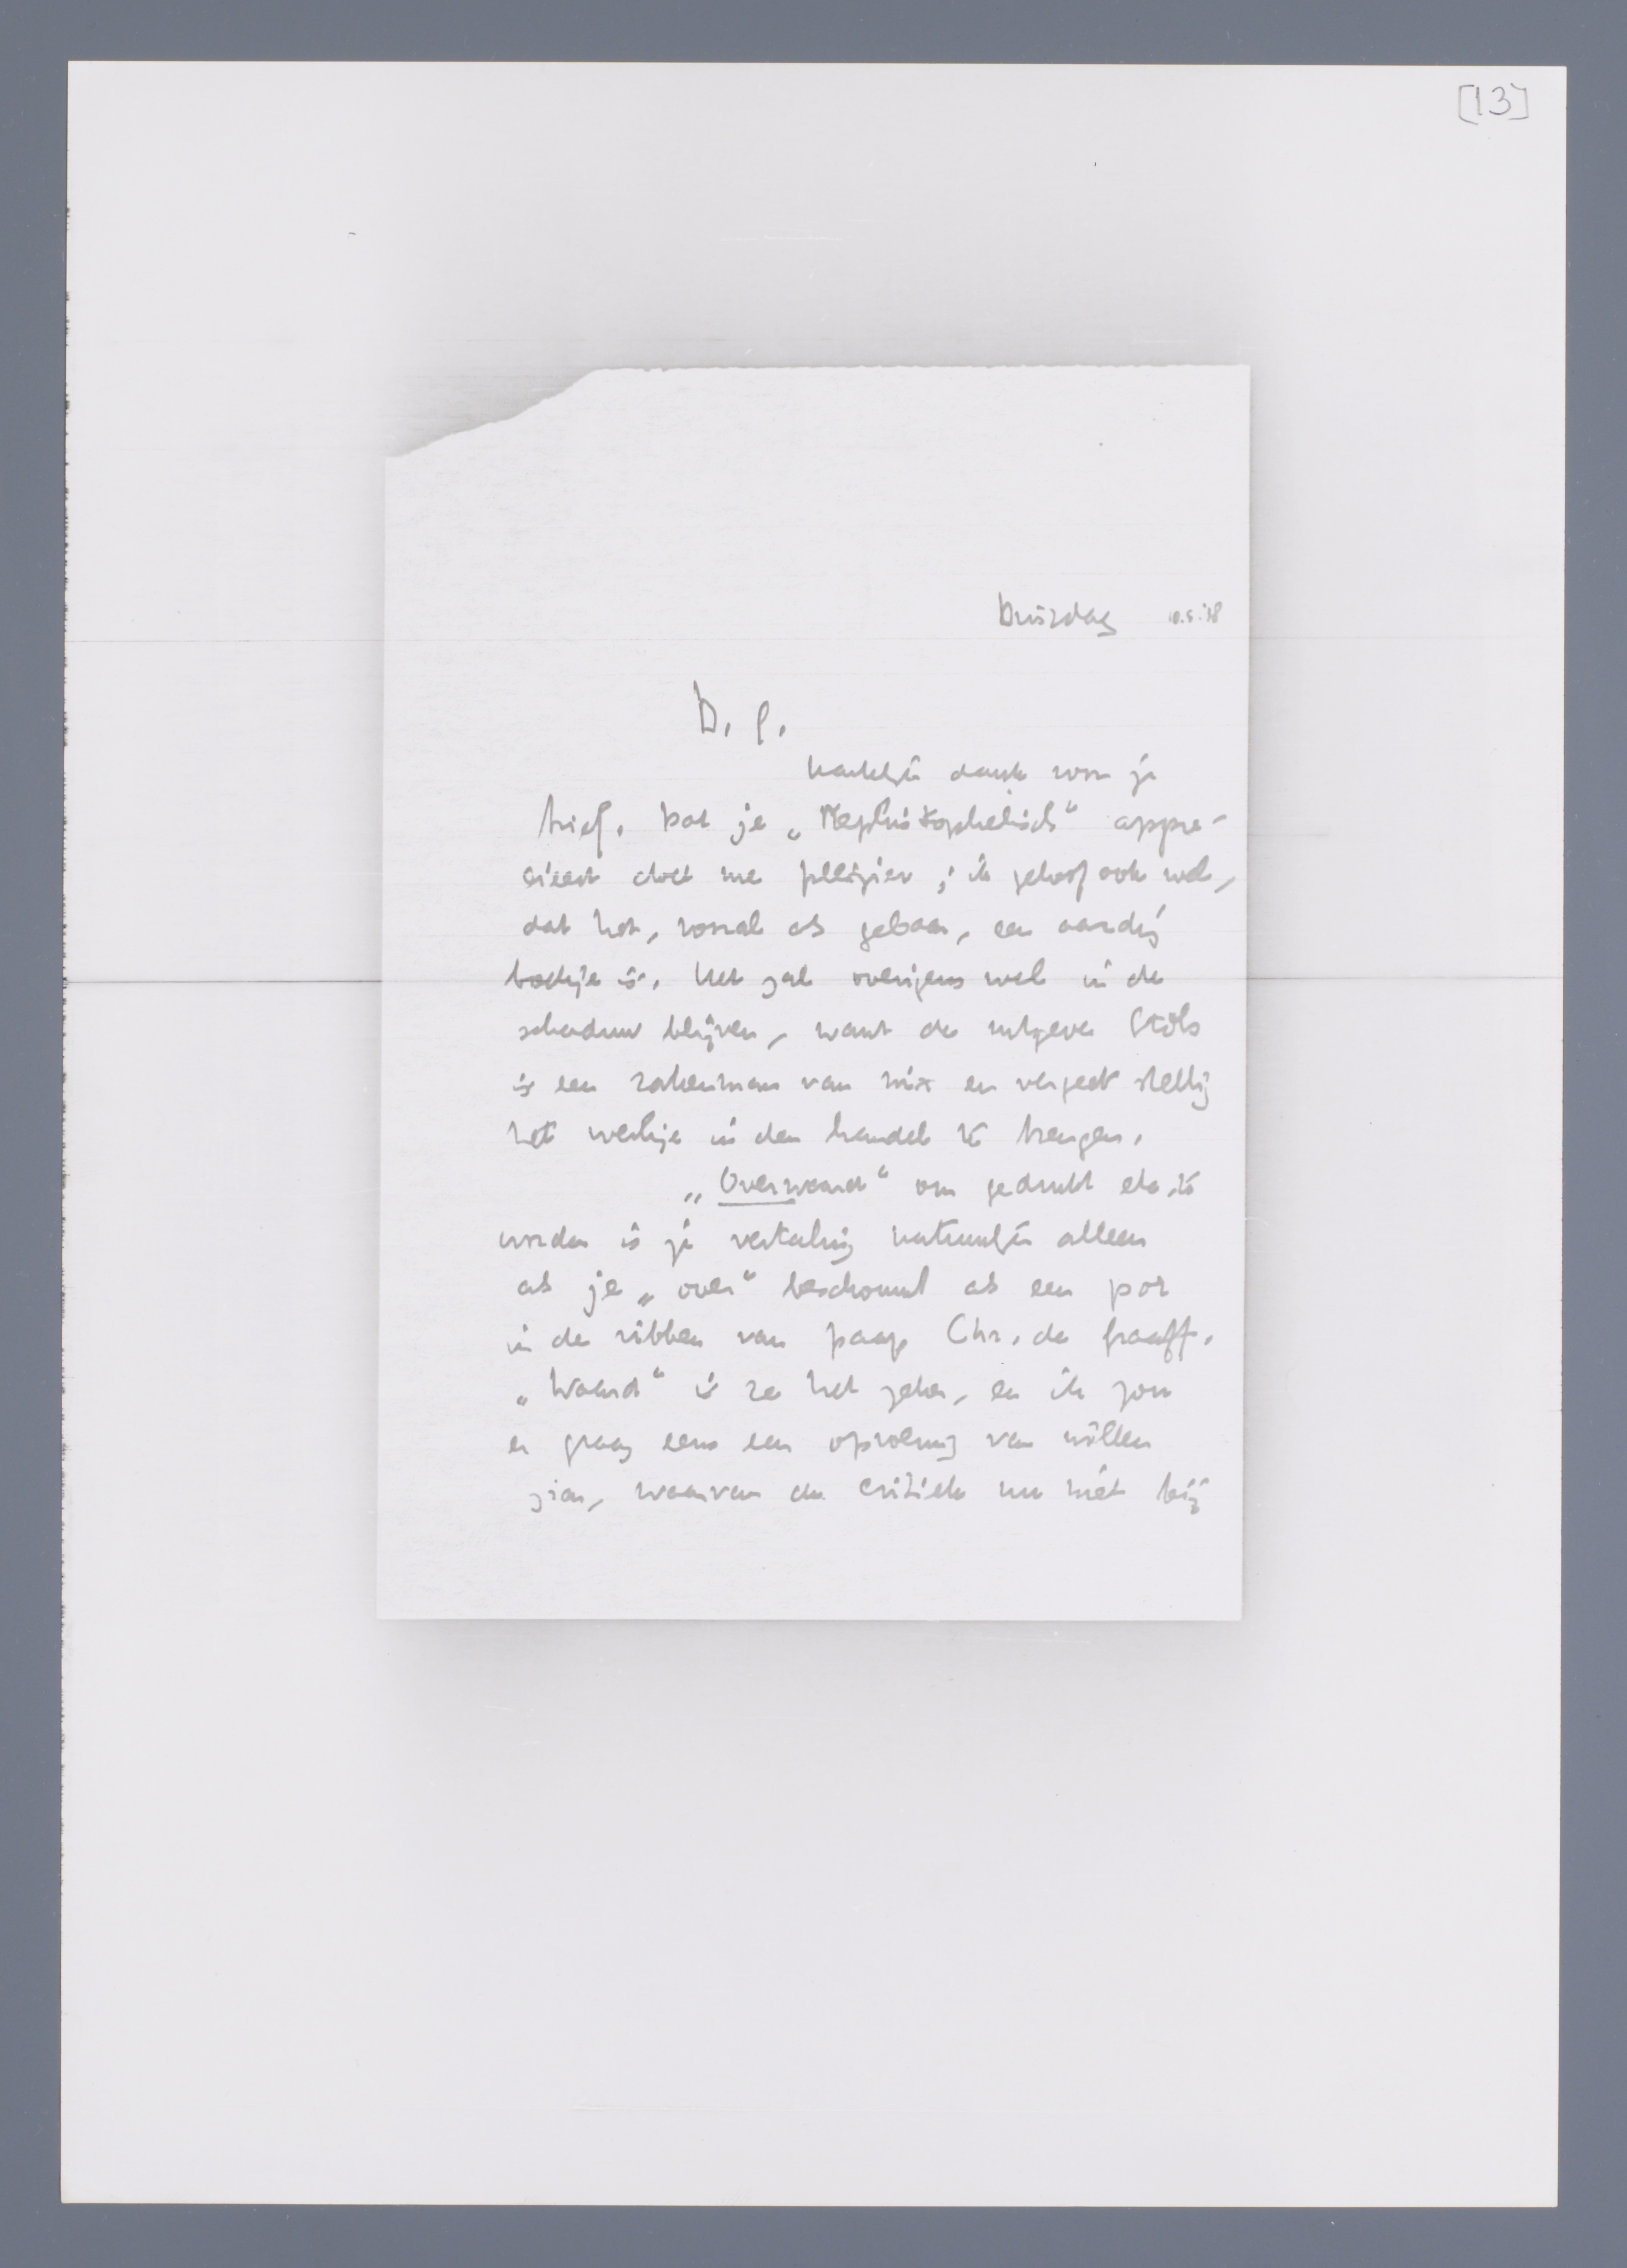 [13]
Dinsdag 10.5.'38
D. G.
Hartelijk dank voor je
brief. Dat je „Mephistophelisch" appre-
cieert doet me plezier; ik geloof ook wel,
dat het, vooral als gebaar, een aardig
boekje is. Het zal overigens wel in de
schaduw blijven, want de uitgever Stols
is een zakenman van nix en vergeet stellig
het werkje in den handel te brengen.
„Overwaard" om gedrukt etc. te
worden is je vertaling natuurlijk alleen
als je „over" beschouwt als een por
in de ribben van paap Chr. de Graaff.
„Waard" is ze het zeker, en ik zou
er graag eens een opvoering van willen
zien, waarvan de critiek nu niet bij